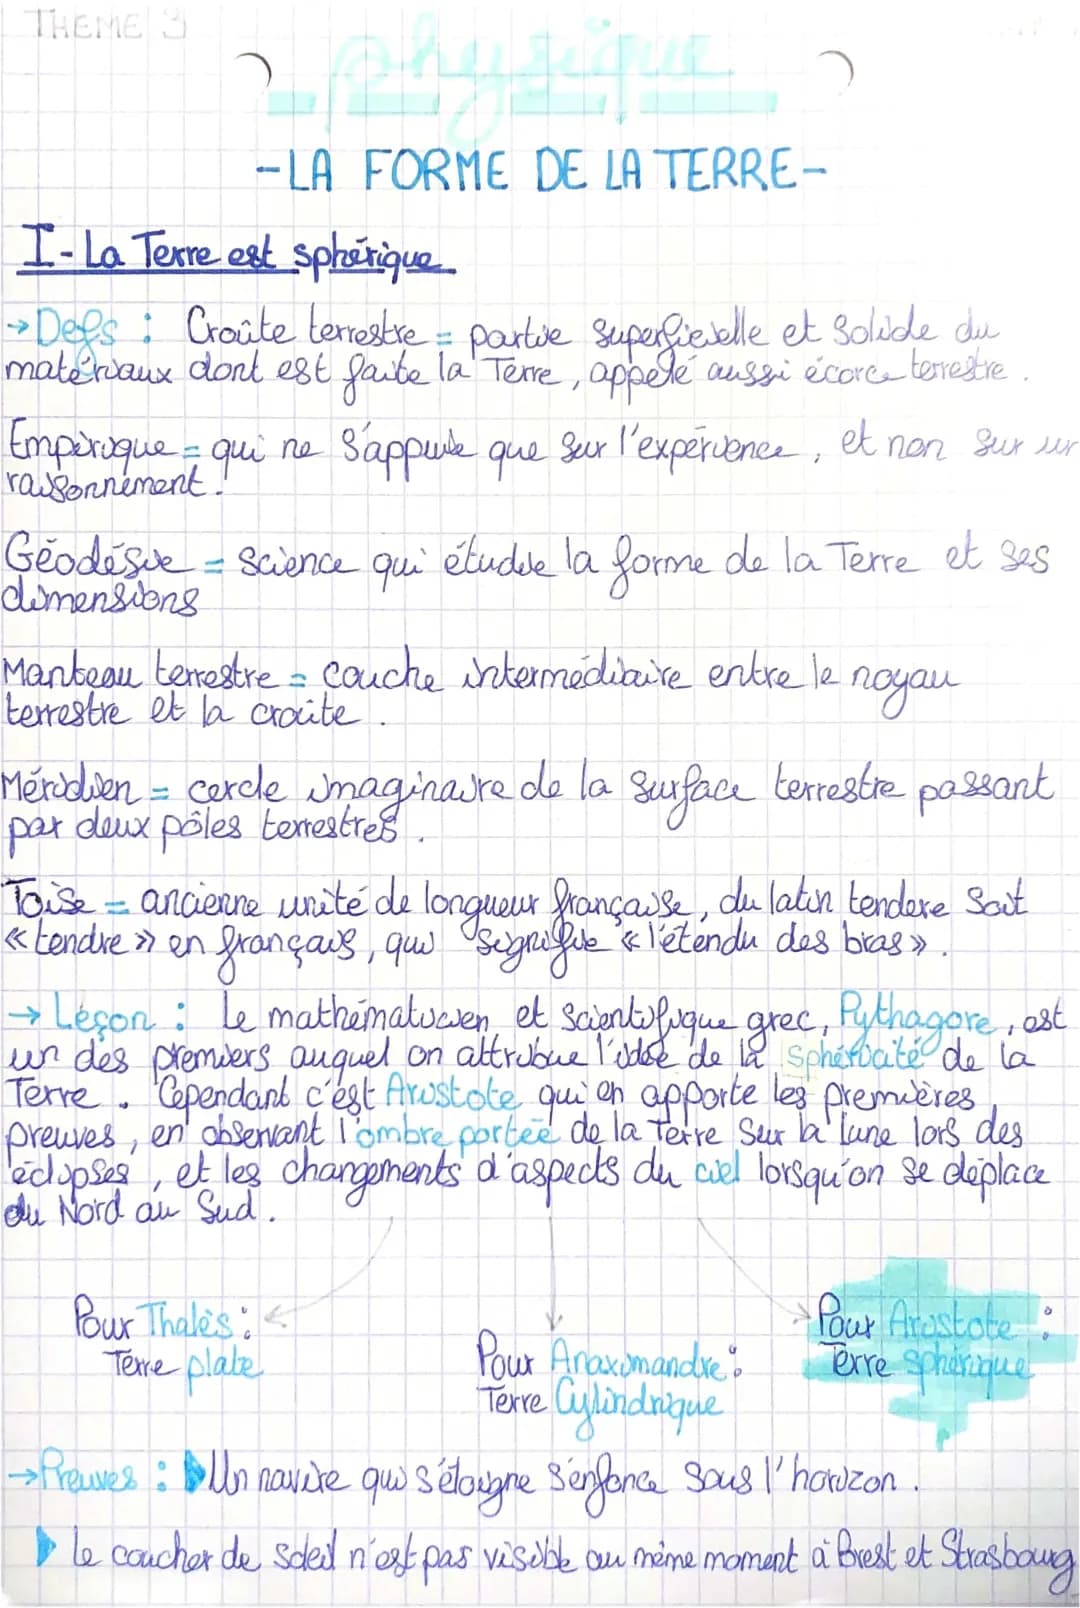 THEME 3
Physique
-LA FORME DE LA TERRE-
I- La Terre est sphérique
→Defs : Croûte terrestre = partie superficielle et solide du
matériaux dont est faite la Terre, appelé aussi écorce terrestre.
Empirique = qui ne s'appuie que sur l'expérience, et non sur un
raisonnement.
Géodésie = science qui étudie la forme de la Terre et ses
dimensions
Manteau terrestre = couche intermédiaire entre le noyau
terrestre et la croûte.
Méridien = cercle imaginaire de la surface terrestre passant
par deux pôles terrestres.
Toise = ancienne unité de longueur française, du latin tendere soit
«tendre» en français, qui signifie «l'étendu des bras».
→ Leçon : Le mathématicien et scientifique grec, Pythagore, est
un des premiers auquel on attribue l'idée de la sphéricité de la
Terre. Cependant c'est Aristote qui en apporte les premières
preuves, en observant l'ombre portée de la Terre sur la lune lors des
éclipses, et les changements d'aspects du ciel lorsqu'on se déplace
du Nord au Sud.
Pour Thalès :
Terre plate
Pour Anaximandre :
Terre Cylindrique
Pour Aristote :
Terre sphérique
→Preuves : Un navire qui s'éloigne s'enfonce sous l'horizon.
Le coucher de soleil n'est pas visible au même moment à Brest et Strasbourg